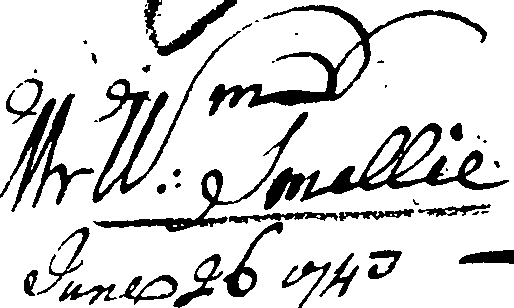 Mr Wm: Smellie
June 26 1743